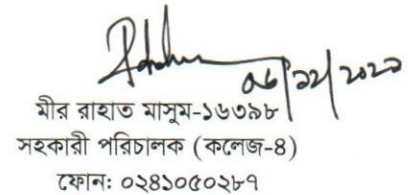 ০৬/১২/২০২১
মীর রাহাত মাসুম-১৬৩৯৮
সহকারী পরিচালক (কলেজ-৪)
ফোন: ০২৪১০৫০২৮৭